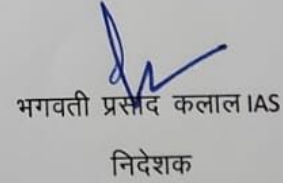 भगवती प्रसाद कलाल IAS
निदेशक